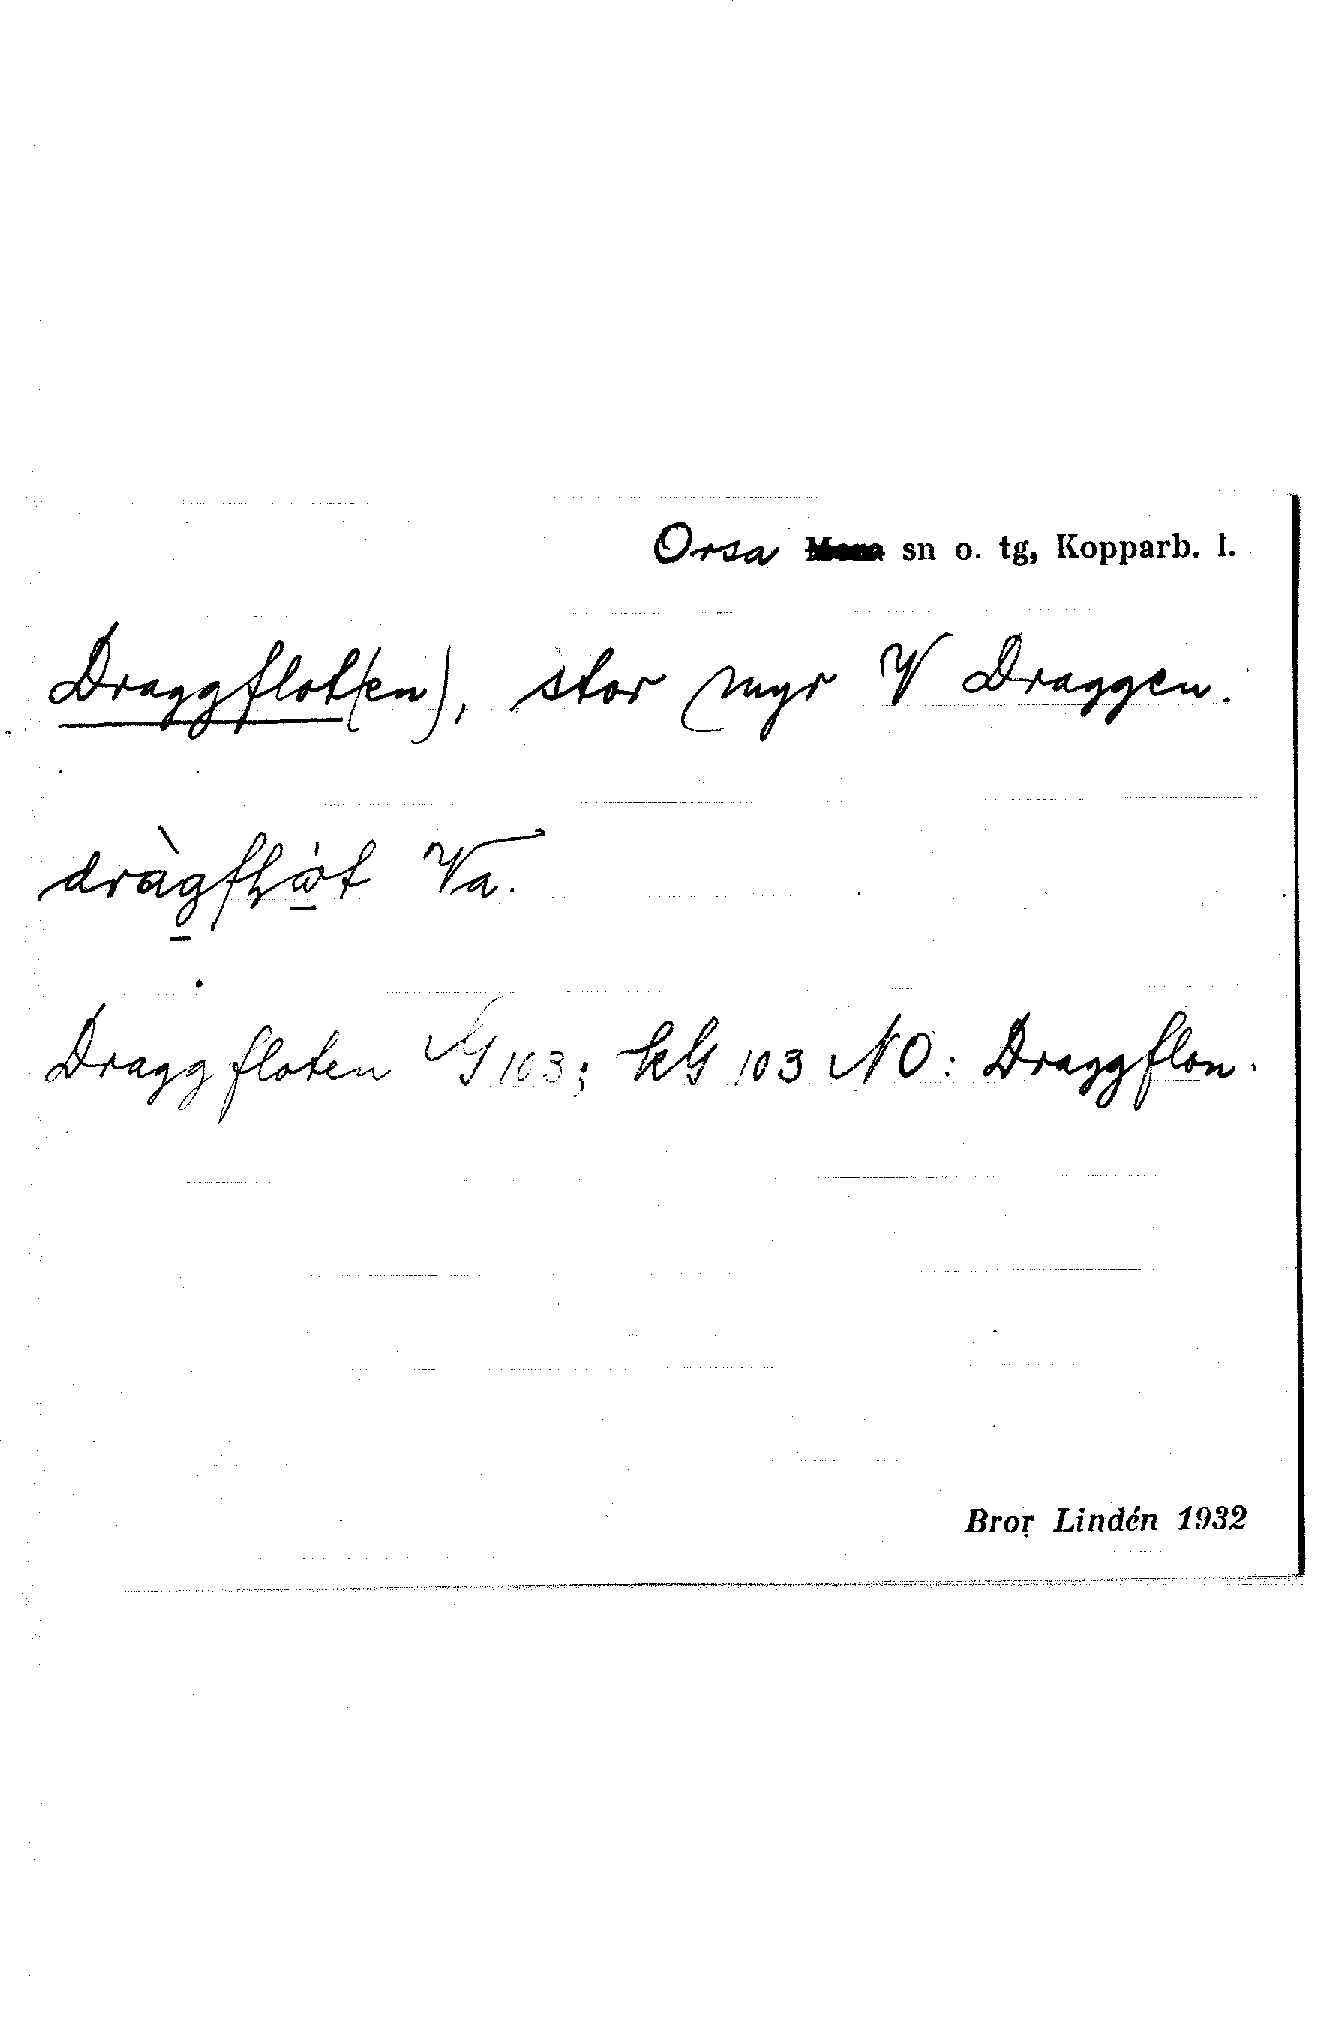 Orsa Mora sn o. tg, Kopparb. l.
Draggflot(en), stor myr V Draggen.
Va.
Draggfloten G 103; kG 103 NO: Draggflon.
Bror Lindén 1932